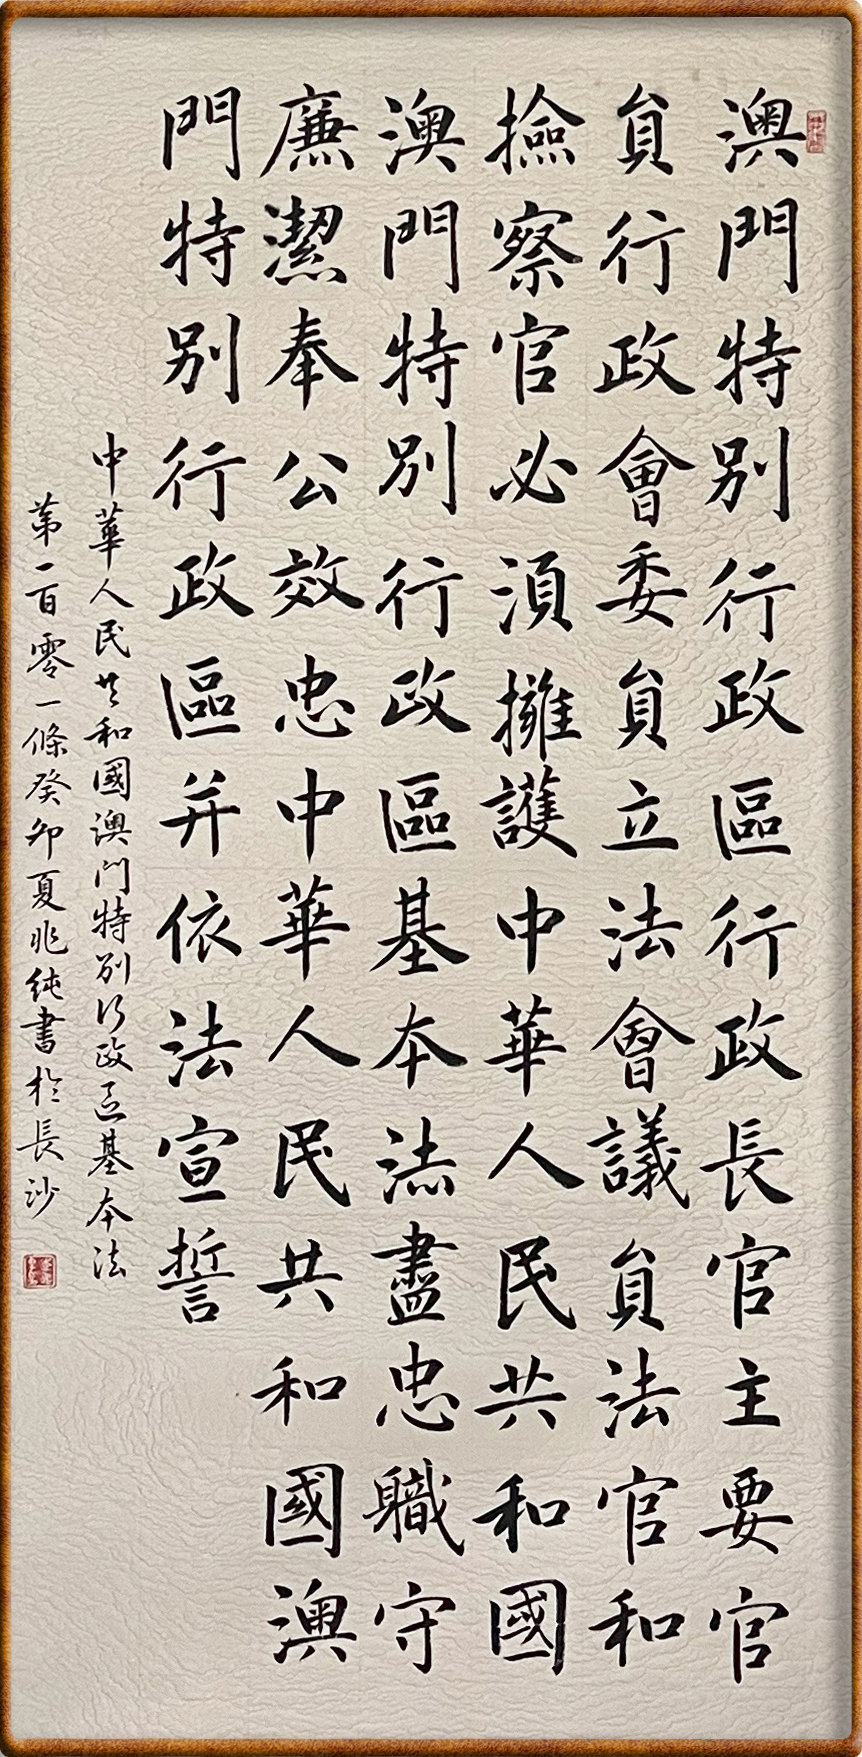 澳門特別行政區行政長官主要官
員行政會委員立法會議員法官和
撿察官必須擁護中華人民共和國
澳門特別行政區基本法盡忠職守
廉潔奉公效忠中華人民共和國澳
門特別行政區并依法宣誓
中華人民共和國澳門特別行政區基本法
第一百零一條癸卯夏兆純書於長沙